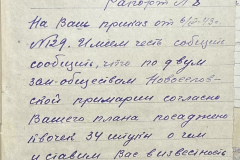 Рапорт №
На Ваш приказ от
№29. Имеем честь сообщ
сообщить, что по двум
зем-обществам Новоселов-
ской примарии согласно
Вашего плана посаджено
явочек 34 штуки о чем
и ставим Вас в известность